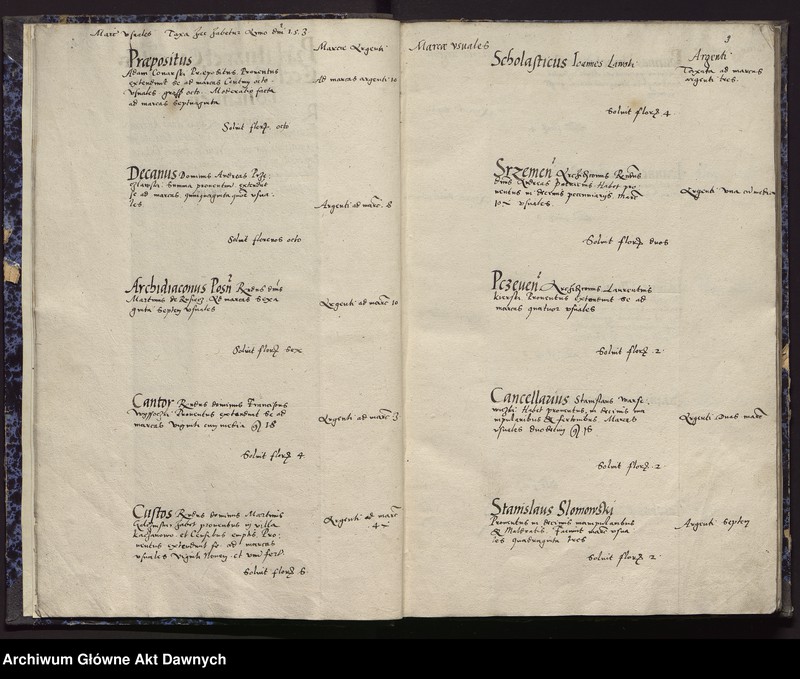 Marcae usuales Taxa hec habetur
Marcae Argenti
Præpositus
Adam Conarski Præpositus Proventus
extendunt se ad marcas Centum octo
usuales gross. octo. Moderatio facta
ad marcas septuaginta
Ad marcas argenti 10
Soluit flor. octo
Decanus Dominus Andreas
Summa proventuum extendit
se ad marcas, quinquaginta quatuor usua
les.
Argenti ad marc. 8
Soluit florenos octo
Archidiaconus Posn. Rndus dns
Martinus de Ad marcas sexa
ginta septem usuales
Argenti ad marc 10
Soluit flor. sex
Cantor Rndus dominus Franciscus
Proventus extendunt se ad
marcas viginti cum media 18
Argenti ad marc 3
Soluit flor. 4
Custos Rndus dominus Martinus
habet proventus in villa
et Censibus emptis. Pro
ventus extendunt se ad marcas
usuales viginti novem. et
Argenti ad marc
4
Soluit flor. 5
Marcae usuales
3
Argenti
Scholasticus Ioannes
Taxata ad marcas
argenti tres.
Soluit flor. 4.
Srzemen. Archidiaconus Rndus
dnus Andreas Habet pro
ventus in decimis pecuniariis. marc
usuales.
Argenti una cum media
Soluit flor. duos
Pczeuen. Archidiaconus Laurentius
Proventus extendunt se ad
marcas quatuor usuales
Soluit flor. 2.
Cancellarius Stanislaus
Habet proventus, in decimis ma
nipularibus & fertonibus. Marcas
usuales duodecim
Argenti duas marc
Soluit flor. 2.
Stanislaus Slomowski
Proventus in decimis manipularibus
& Faciunt marc usua
les quadraginta tres
Argenti septem
Soluit flor. 2.
Archiwum Główne Akt Dawnych